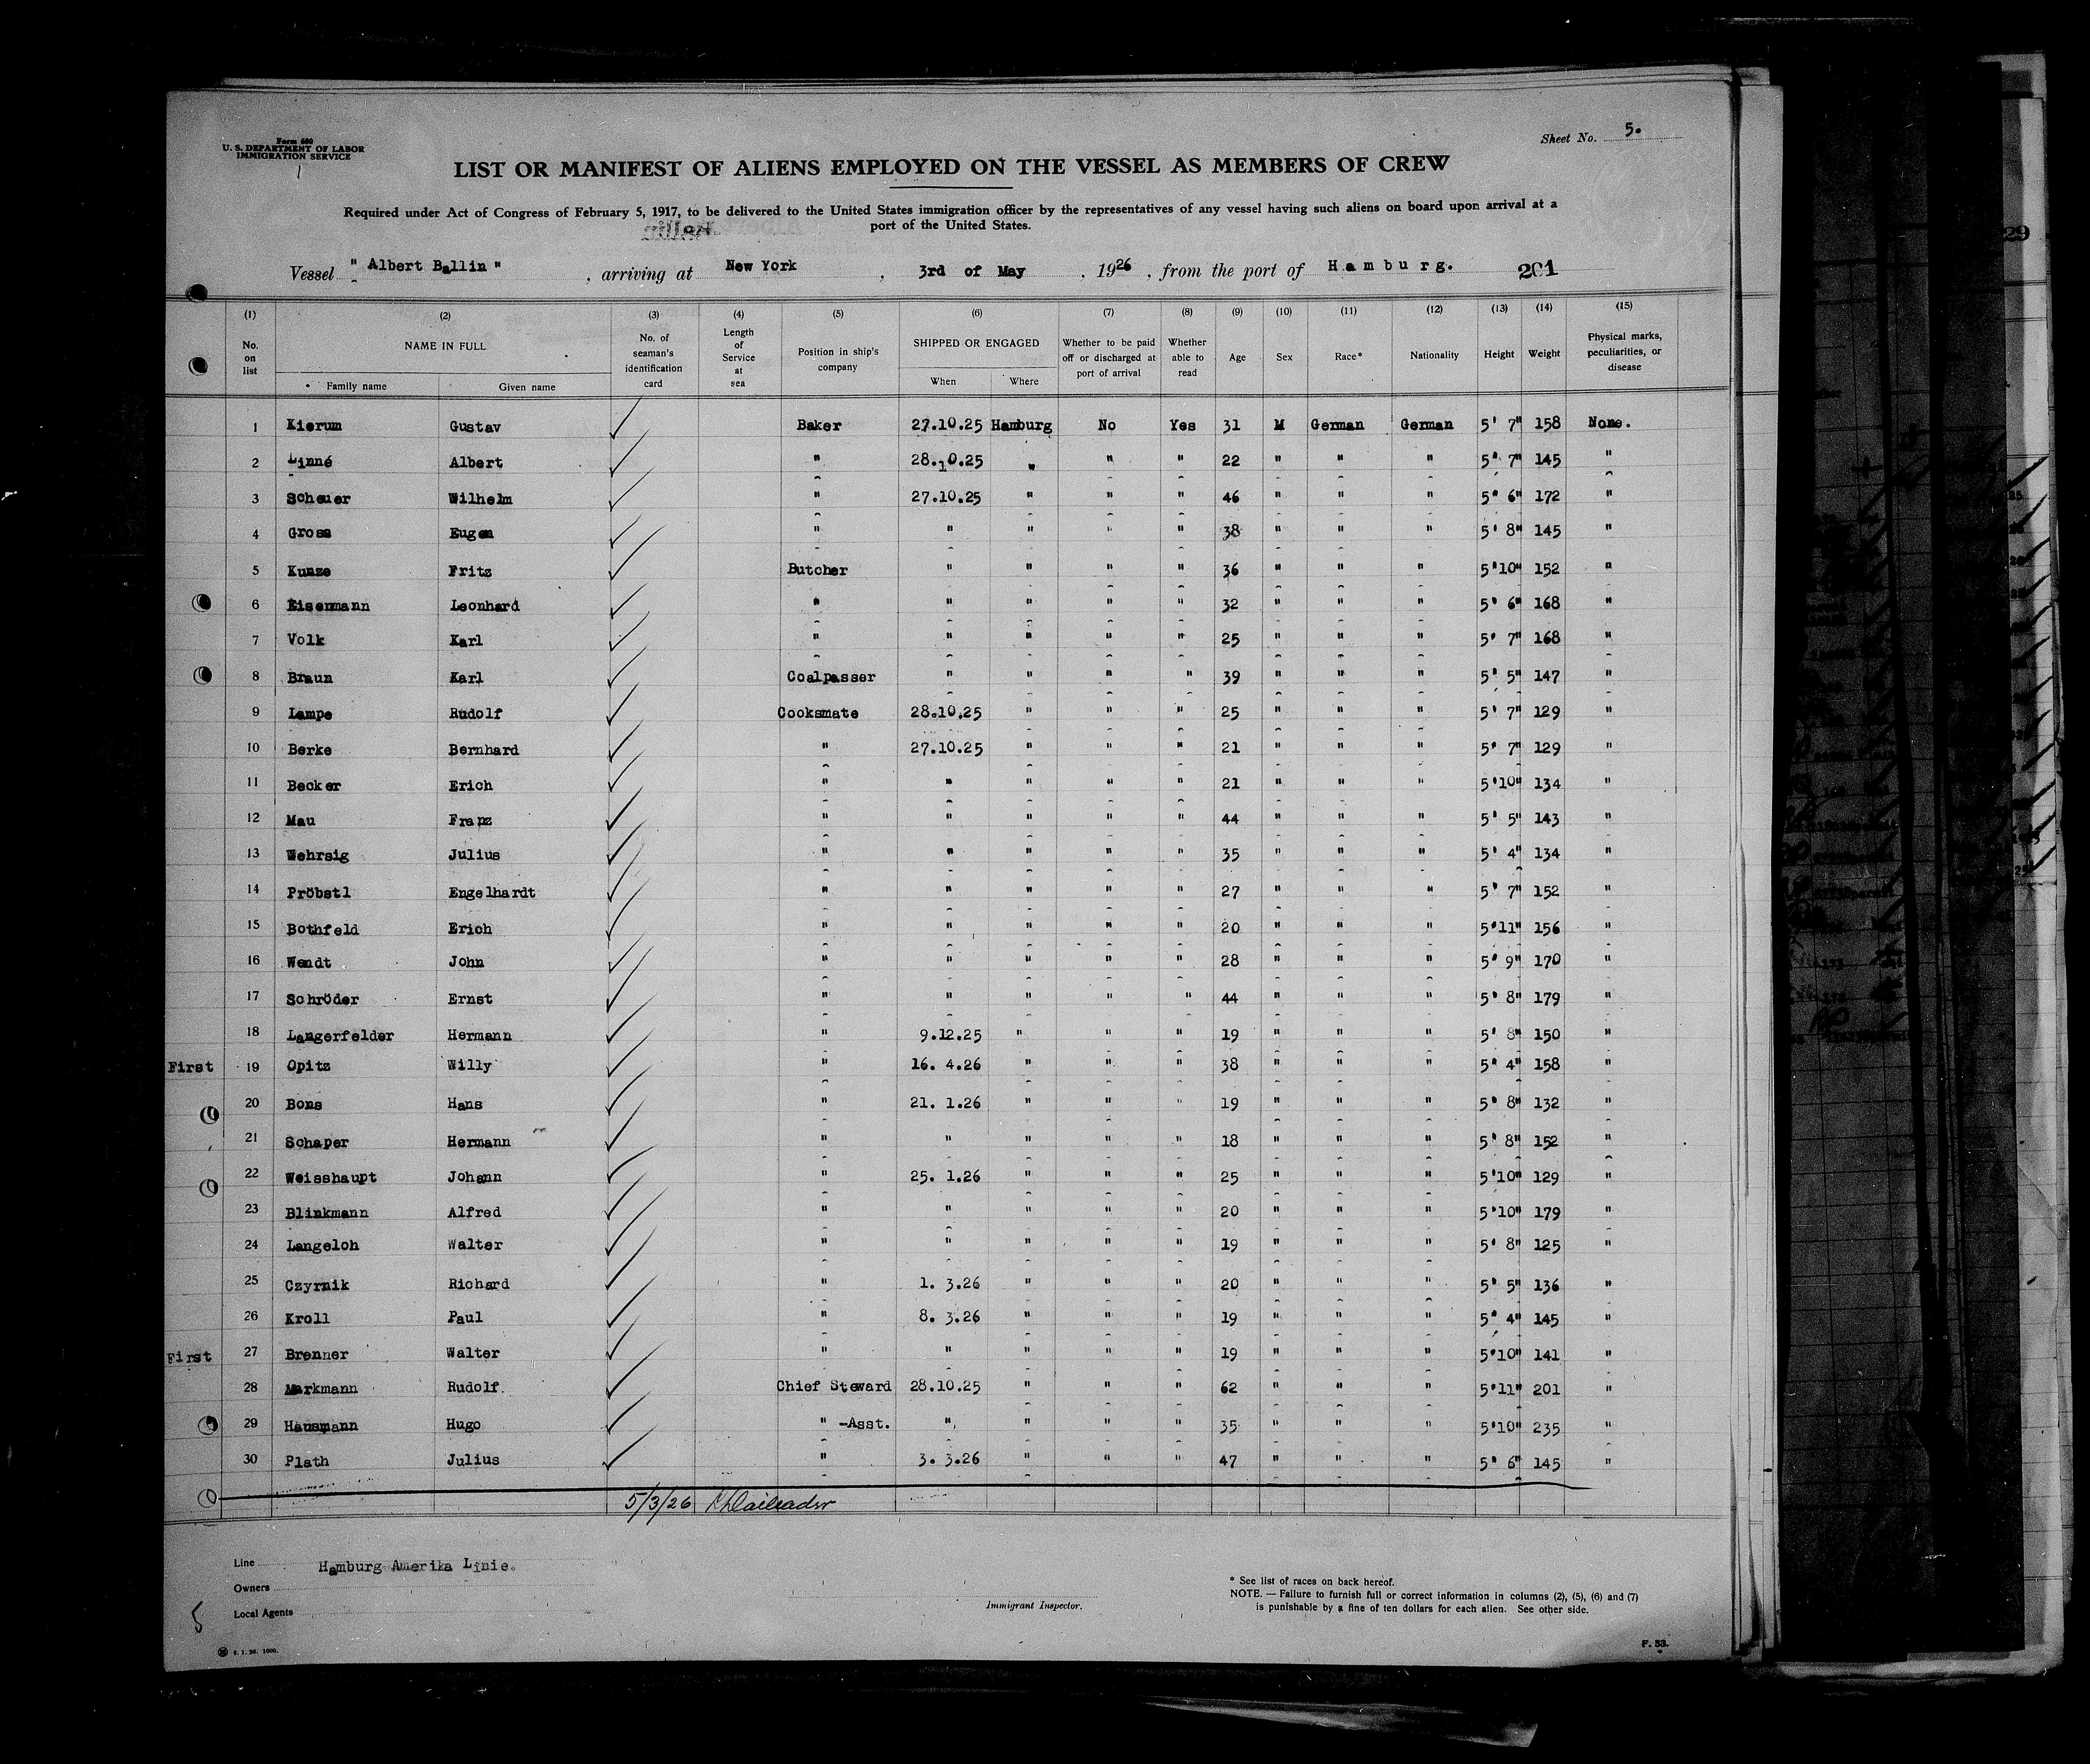 Form 680
U. S. DEPARTMENT OF LABOR
IMMIGRATION SERVICE
Sheet No. 5.
LIST OR MANIFEST OF ALIENS EMPLOYED ON THE VESSEL AS MEMBERS OF CREW
Required under Act of Congress of February 5, 1917, to be delivered to the United States immigration officer by the representatives of any vessel having such aliens on board upon arrival at a
port of the United States.
Vessel "Albert Ballin", arriving at New York, 3rd of May, 1926, from the port of Hamburg. 201
(1) (2) (3) (4) (5) (6) (7) (8) (9) (10) (11) (12) (13) (14) (15)
No. on list NAME IN FULL Family name Given name No. of seaman's identification card Length of Service at sea Position in ship's company SHIPPED OR ENGAGED When Where Whether to be paid off or discharged at port of arrival Whether able to read Age Sex Race* Nationality Height Weight Physical marks, peculiarities, or disease
1 Kierum Gustav Baker 27.10.25 Hamburg No Yes 31 M German German 5' 7" 158 None.
2 Linné Albert " 28.10.25 " " " 22 " " " 5' 7" 145 "
3 Scheuer Wilhelm " 27.10.25 " " " 46 " " " 5' 6" 172 "
4 Gross Eugen " " " " " 38 " " " 5' 8" 145 "
5 Kunze Fritz Butcher " " " " 36 " " " 5'10" 152 "
6 Eisenmann Leonhard " " " " " 32 " " " 5' 6" 168 "
7 Volk Karl " " " " " 25 " " " 5' 7" 168 "
8 Braun Karl Coalpasser " " " " 39 " " " 5' 5" 147 "
9 Lampe Rudolf Cooksmate 28.10.25 " " " 25 " " " 5' 7" 129 "
10 Berke Bernhard " 27.10.25 " " " 21 " " " 5' 7" 129 "
11 Becker Erich " " " " " 21 " " " 5'10" 134 "
12 Mau Franz " " " " " 44 " " " 5' 5" 143 "
13 Wehrsig Julius " " " " " 35 " " " 5' 4" 134 "
14 Pröbstl Engelhardt " " " " " 27 " " " 5' 7" 152 "
15 Bothfeld Erich " " " " " 20 " " " 5'11" 156 "
16 Wendt John " " " " " 28 " " " 5' 9" 170 "
17 Schröder Ernst " " " " " 44 " " " 5' 8" 179 "
18 Langerfelder Hermann " 9.12.25 " " " 19 " " " 5' 8" 150 "
First 19 Opitz Willy " 16. 4.26 " " " 38 " " " 5' 4" 158 "
20 Bons Hans " 21. 1.26 " " " 19 " " " 5' 8" 132 "
21 Schaper Hermann " " " " " 18 " " " 5' 8" 152 "
22 Weisshaupt Johann " 25. 1.26 " " " 25 " " " 5'10" 129 "
23 Blinkmann Alfred " " " " " 20 " " " 5'10" 179 "
24 Langeloh Walter " " " " " 19 " " " 5' 8" 125 "
25 Czyrnik Richard " 1. 3.26 " " " 20 " " " 5' 5" 136 "
26 Kroll Paul " 8. 3.26 " " " 19 " " " 5' 4" 145 "
First 27 Brenner Walter " " " " " 19 " " " 5'10" 141 "
28 Markmann Rudolf Chief Steward 28.10.25 " " " 62 " " " 5'11" 201 "
29 Hausmann Hugo " -Asst. " " " " 35 " " " 5'10" 235 "
30 Plath Julius " 3. 3.26 " " " 47 " " " 5' 6" 145 "
5/3/26
Line Hamburg Amerika Linie.
Owners
Local Agents
Immigrant Inspector.
* See list of races on back hereof.
NOTE. — Failure to furnish full or correct information in columns (2), (5), (6) and (7)
is punishable by a fine of ten dollars for each alien. See other side.
5
F. 53.